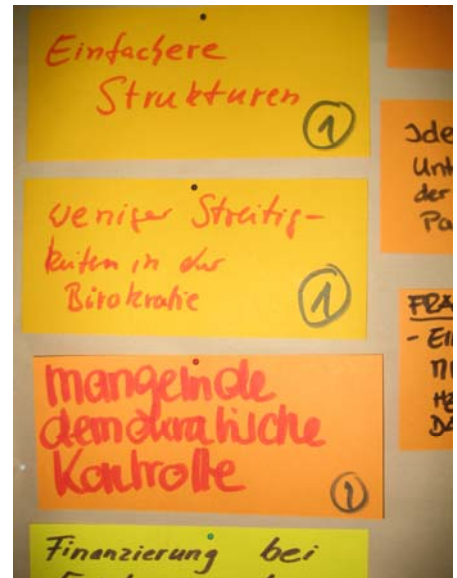 Einfachere
Strukturen
1
weniger Streitig-
keiten in der
Bürokratie
1
mangelnde
demokratische
Kontrolle
1
Finanzierung bei
der